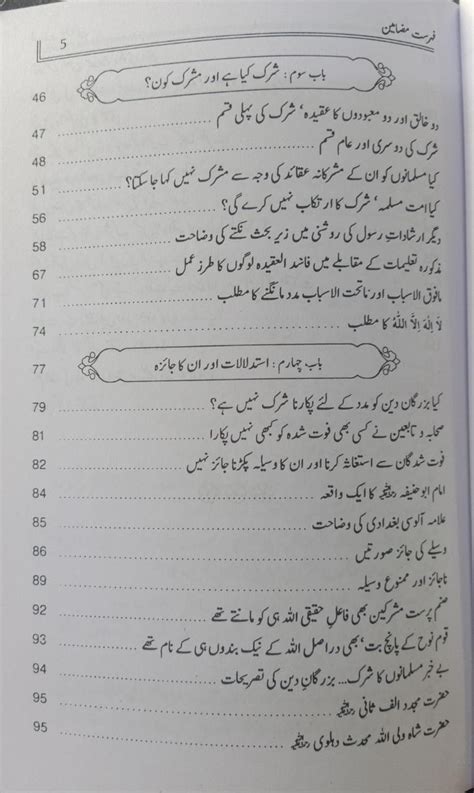 فہرست مضامین 5
باب سوم: شرک کیا ہے اور مشرک کون؟ 46
دو خالق اور دو معبودوں کا عقیدہ' شرک کی پہلی قسم 47
شرک کی دوسری اور عام قسم 48
کیا مسلمانوں کو ان کے مشرکانہ عقائد کی وجہ سے مشرک نہیں کہا جا سکتا؟ 51
کیا امت مسلمہ' شرک کا ارتکاب نہیں کرے گی؟ 56
دیگر ارشاداتِ رسول کی روشنی میں زیرِ بحث نکتے کی وضاحت 58
مذکورہ تعلیمات کے مقابلے میں فاسد العقیدہ لوگوں کا طرزِ عمل 67
مافوق الاسباب اور ماتحت الاسباب مدد مانگنے کا مطلب 71
لَا إِلٰهَ إِلَّا اللّٰهُ کا مطلب 74
باب چہارم: استدلالات اور ان کا جائزہ 77
کیا بزرگان دین کو مدد کے لئے پکارنا شرک نہیں ہے؟ 79
صحابہ و تابعین نے کسی بھی فوت شدہ کو کبھی نہیں پکارا 81
فوت شدگان سے استغاثہ کرنا اور ان کا وسیلہ پکڑنا جائز نہیں 82
امام ابو حنیفہ رحمہ اللہ کا ایک واقعہ 84
علامہ آلوسی بغدادی کی وضاحت 85
وسیلے کی جائز صورتیں 86
ناجائز اور ممنوع وسیلہ 89
صنم پرست مشرکین بھی فاعلِ حقیقی اللہ ہی کو مانتے تھے 92
قوم نوح کے پانچ بت' بھی دراصل اللہ کے نیک بندوں ہی کے نام تھے 93
بے خبر مسلمانوں کا شرک... بزرگانِ دین کی تصریحات 94
حضرت مجدد الف ثانی رحمہ اللہ 95
حضرت شاہ ولی اللہ محدث دہلوی رحمہ اللہ 95